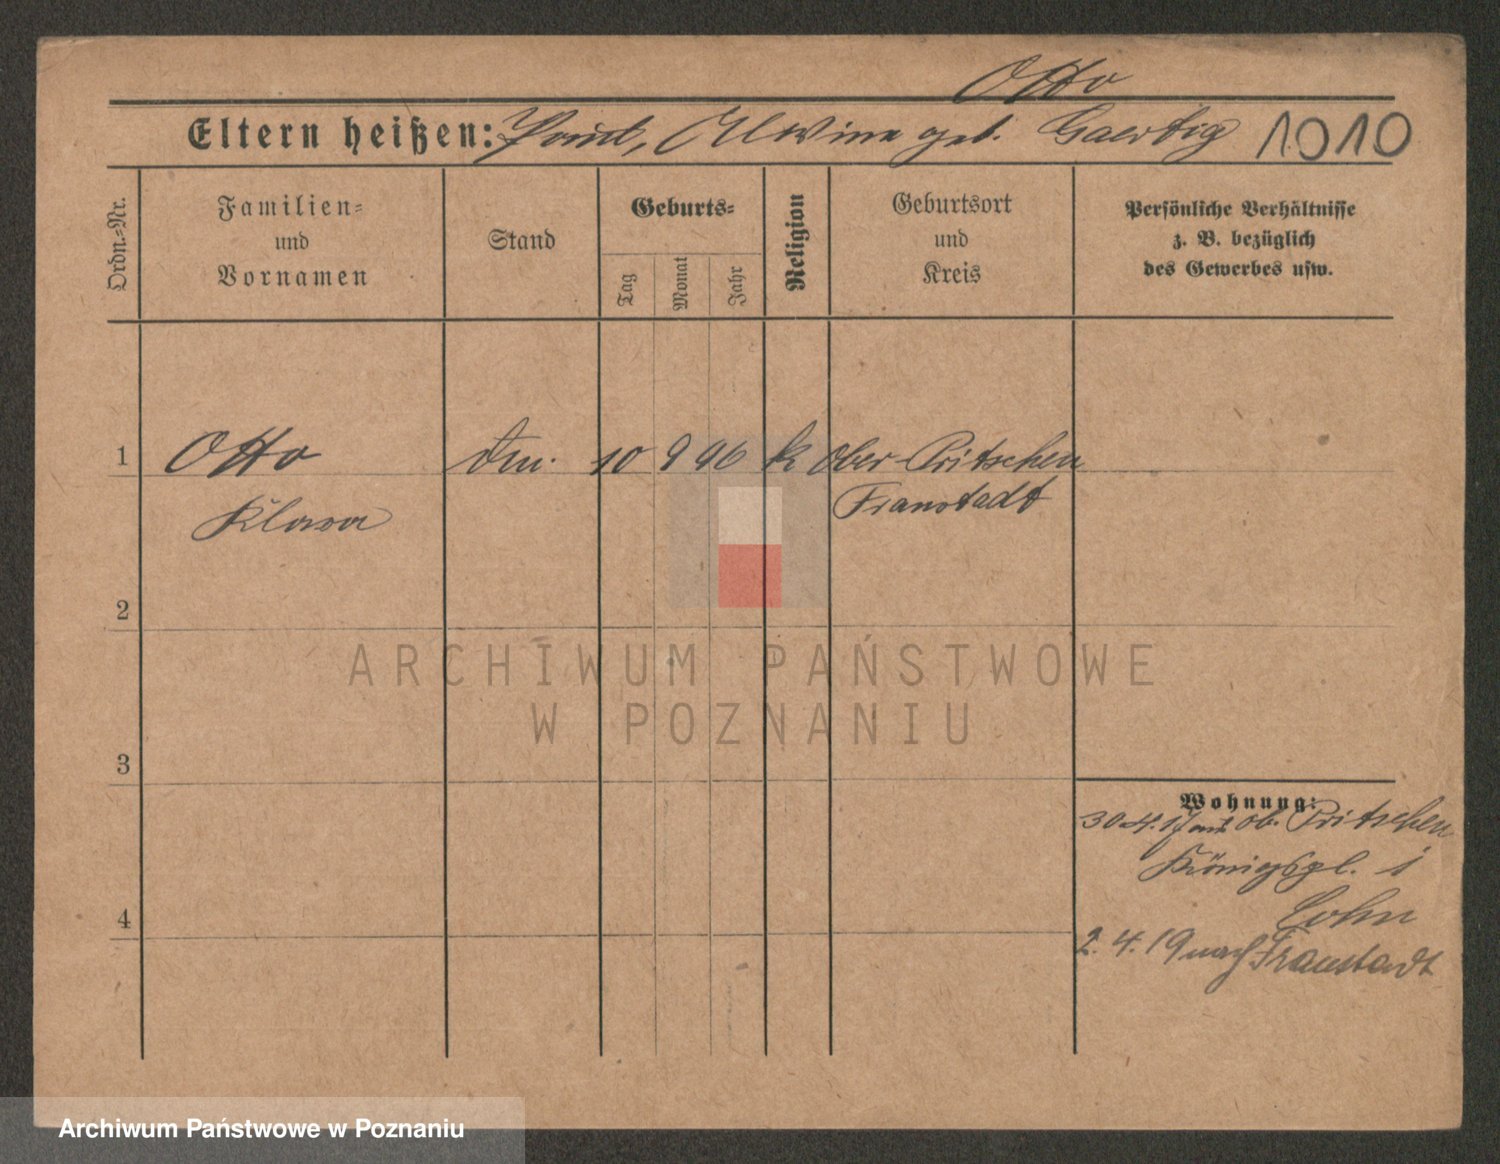 Otto
Eltern heißen: Paul, Alwine geb. Gaertig 1010
Ordn.=Nr.
Familien=
und
Vornamen
Stand
Geburts=
Tag
Monat
Jahr
Religion
Geburtsort
und
Kreis
Persönliche Verhältnisse
z. B. bezüglich
des Gewerbes usw.
1 Otto 10 9 96 k Ober-Pritschen
Klara Fraustadt
2
3
4
Wohnung:
30.4.17 aus Ob. Pritschen
Königspl. i
Cohn
2. 4. 19 nach Fraustadt
ARCHIWUM PAŃSTWOWE
W POZNANIU
Archiwum Państwowe w Poznaniu